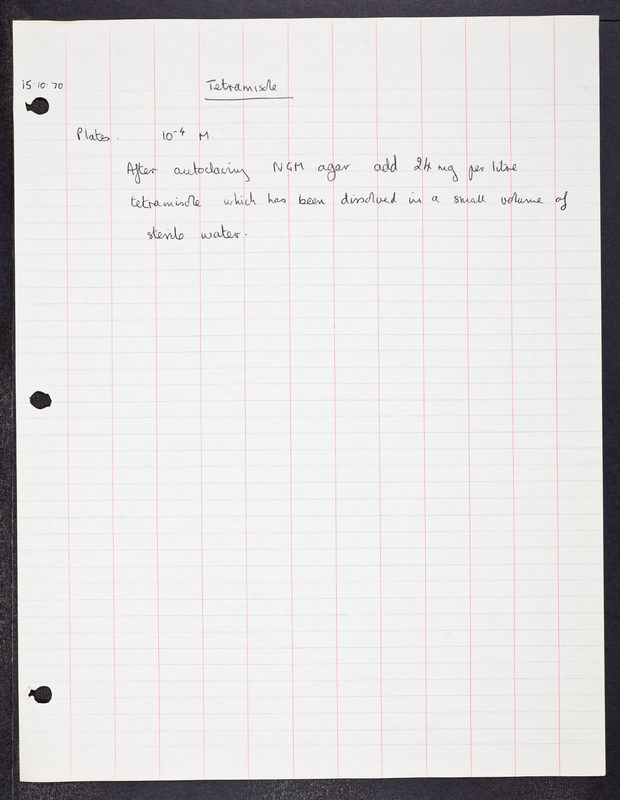 15·10·70
Tetramisole
Plates. 10⁻⁴ M
After autoclaving NGM agar add 24 mg per litre
tetramisole which has been dissolved in a small volume of
sterile water.